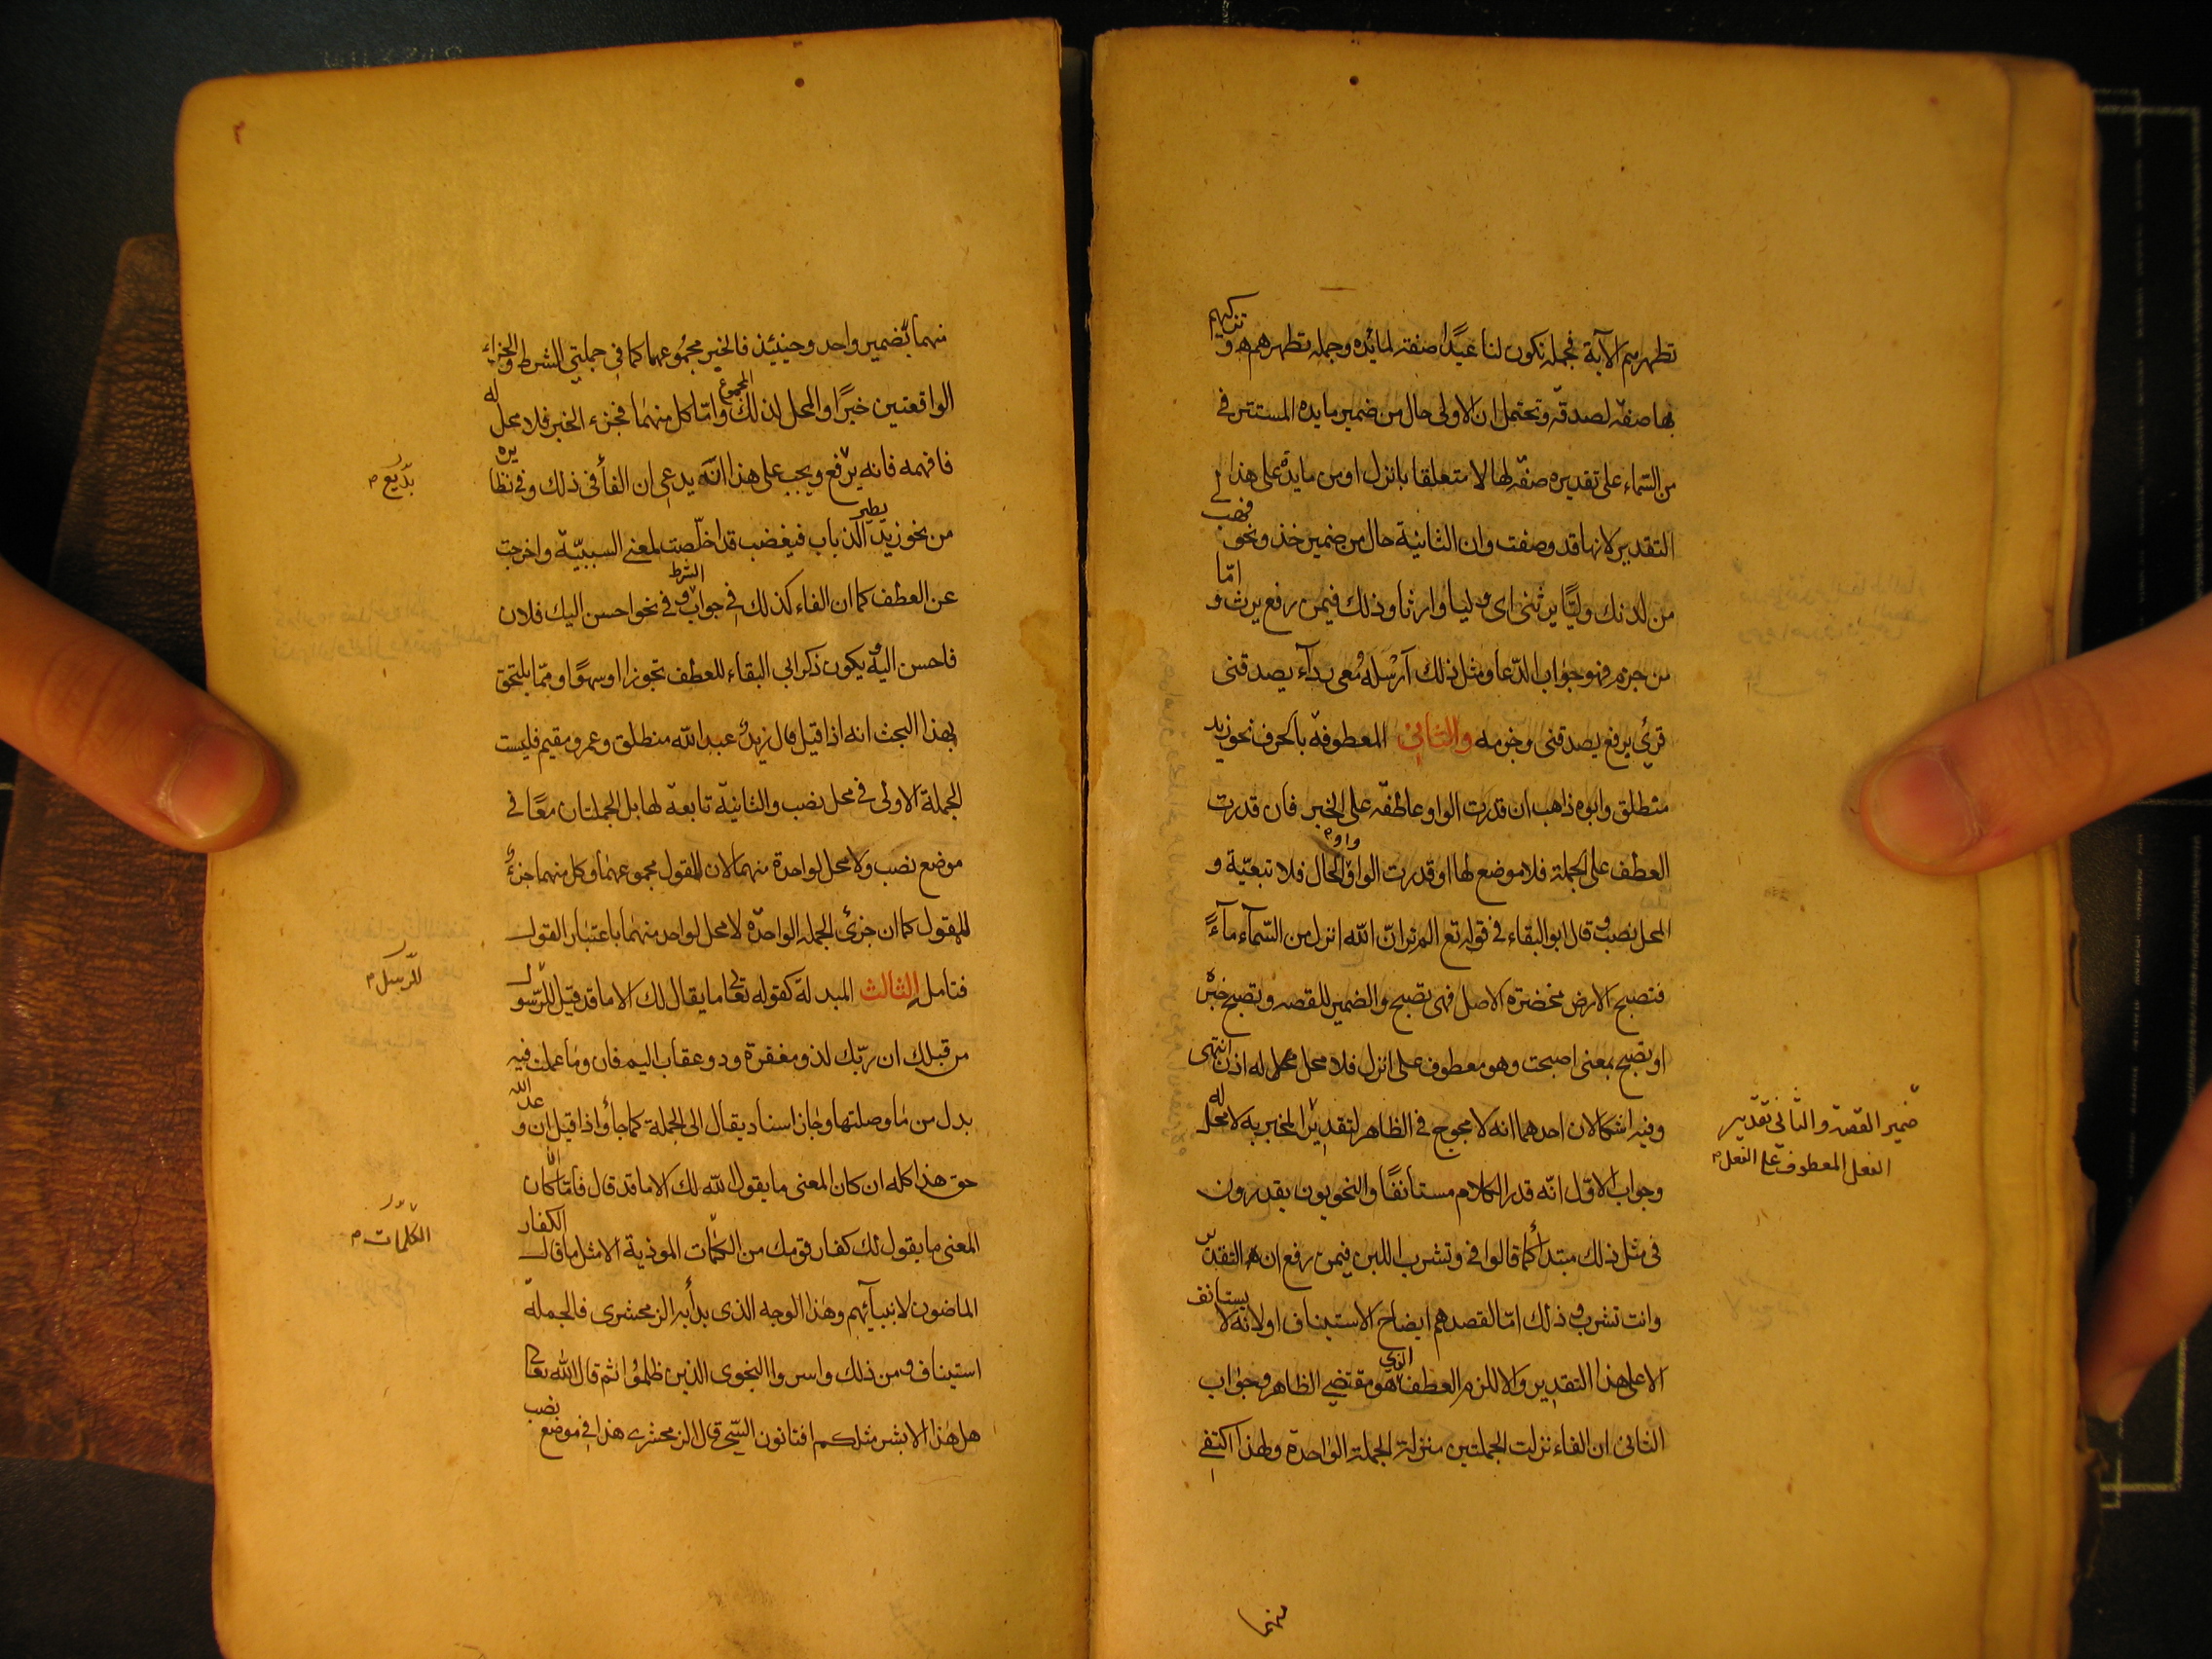 تطهرهم الآية فجملة تكون لنا عيدًا صفة لمائدة وجملة تطهرهم وتزكيهم
بها صفة لصدقة ويحتمل ان الاولى حال من ضمير مايدة المستتر في
من السّماء على تقديره صفة لها لا متعلقا بانزل او من مايدة على هذا
التقدير لانها قد وصفت وان الثانية حال من ضمير خذ ونحو فهب لي
من لدنك وليًّا يرثنى اى وليا وارثا وذلك فيمن رفع يرث و امّا
من جزم فهو جواب الدّعا ومثل ذلك ارسله معى ردآء يصدقنى
قرئ برفع يصدقنى وجزمه والثانى المعطوفة بالحرف نحو زيد
منطلق وابوه ذاهب ان قدرت الواو عاطفة على الخبر فان قدرت
العطف على الجملة فلا موضع لها او قدرت الواو واو الحال فلا تبعيّة و
المحل نصب وقال ابو البقاء في قوله تع الم تر انّ اللّه انزل من السّمآء مآءً
فتصبح الارض مخضرة الاصل فهى تصبح والضمير للقصه وتصبح خبره
او تصبح بمعنى اصبحت وهو معطوف على انزل فلا محل له اذن انتهى
وفيه اشكالان احدهما انه لا محوج في الظاهر لتقدير المخبر به لا محل له
ضمير القصة والثانى تقدير
الفعل المعطوف على الفعل
وجواب الاوّل انّه قدر الكلام مستأنفًا والنحويون يقدرون
فى مثل ذلك مبتدأ كما قالوا فى وتشرب اللبن فيمن رفع ان التقدير
وانت تشرب وذلك امّا لقصدهم ايضاح الاستيناف او لانه لا يستانف
الا على هذا التقدير والا للزم العطف الذي هو مقتضي الظاهر وجواب
الثانى ان الفاء نزلت الجملتين منزلة الجملة الواحدة ولهذا اكتفي
منهما
منهما بضمير واحد وحينئذ فالخبر مجموعهما كما في جملتي الشرط والجزاء
الواقعتين خبرًا والمحل لذلك المجموع وامّا كل منهما فجزء الخبر فلا محل له
فافهمه فانه بديع ويجب على هذا انّه يدعى ان الفأ فى ذلك وفي نظايره
بديع
من نحو زيد يطير الذباب فيغضب قد اخلّصت لمعنى السببيّة واخرجت
عن العطف كما ان الفاء كذلك في جواب الشرط و في نحو احسن اليك فلان
فاحسن اليه ويكون ذكر ابي البقاء للعطف تجوزا او سهوًا وممّا يلتحق
بهذا البحث انه اذا قيل قال زيد عبد اللّه منطلق وعمرو مقيم فليست
الجملة الاولى في محل نصب والثانية تابعة لها بل الجملتان معًا في
موضع نصب ولا محل لواحدة منهما لان المقول مجموعهما وكل منهما جزء
للمقول كما ان جزئ الجملة الواحدة لا محل لواحد منهما باعتبار القول
فتامل الثالث المبدلة كقوله تعالى ما يقال لك الا ما قد قيل للرّسول
للرّسل
من قبلك ان ربّك لذو مغفرة وذو عقاب اليم فان وما عملت فيه
بدل من ما وصلتها وجاز اسناد يقال الى الجملة كما جاء واذا قيل ان وعد اللّه
حق هذا كله ان كان المعنى ما يقول اللّه لك الا ما قد قال فامّا ان كان
المعنى ما يقول لك كفار قومك من الكلمات الموذية الا مثل ما قال الكفار
الكلمات
الماضون لانبيآئهم وهذا الوجه الذى بدأ به الزمخشرى فالجملة
استيناف ومن ذلك واسروا النجوى الذين ظلموا ثم قال اللّه تعالى
هل هذا الا بشر مثلكم افتاتون السّحر قال الزمخشرى هذا فى موضع نصب